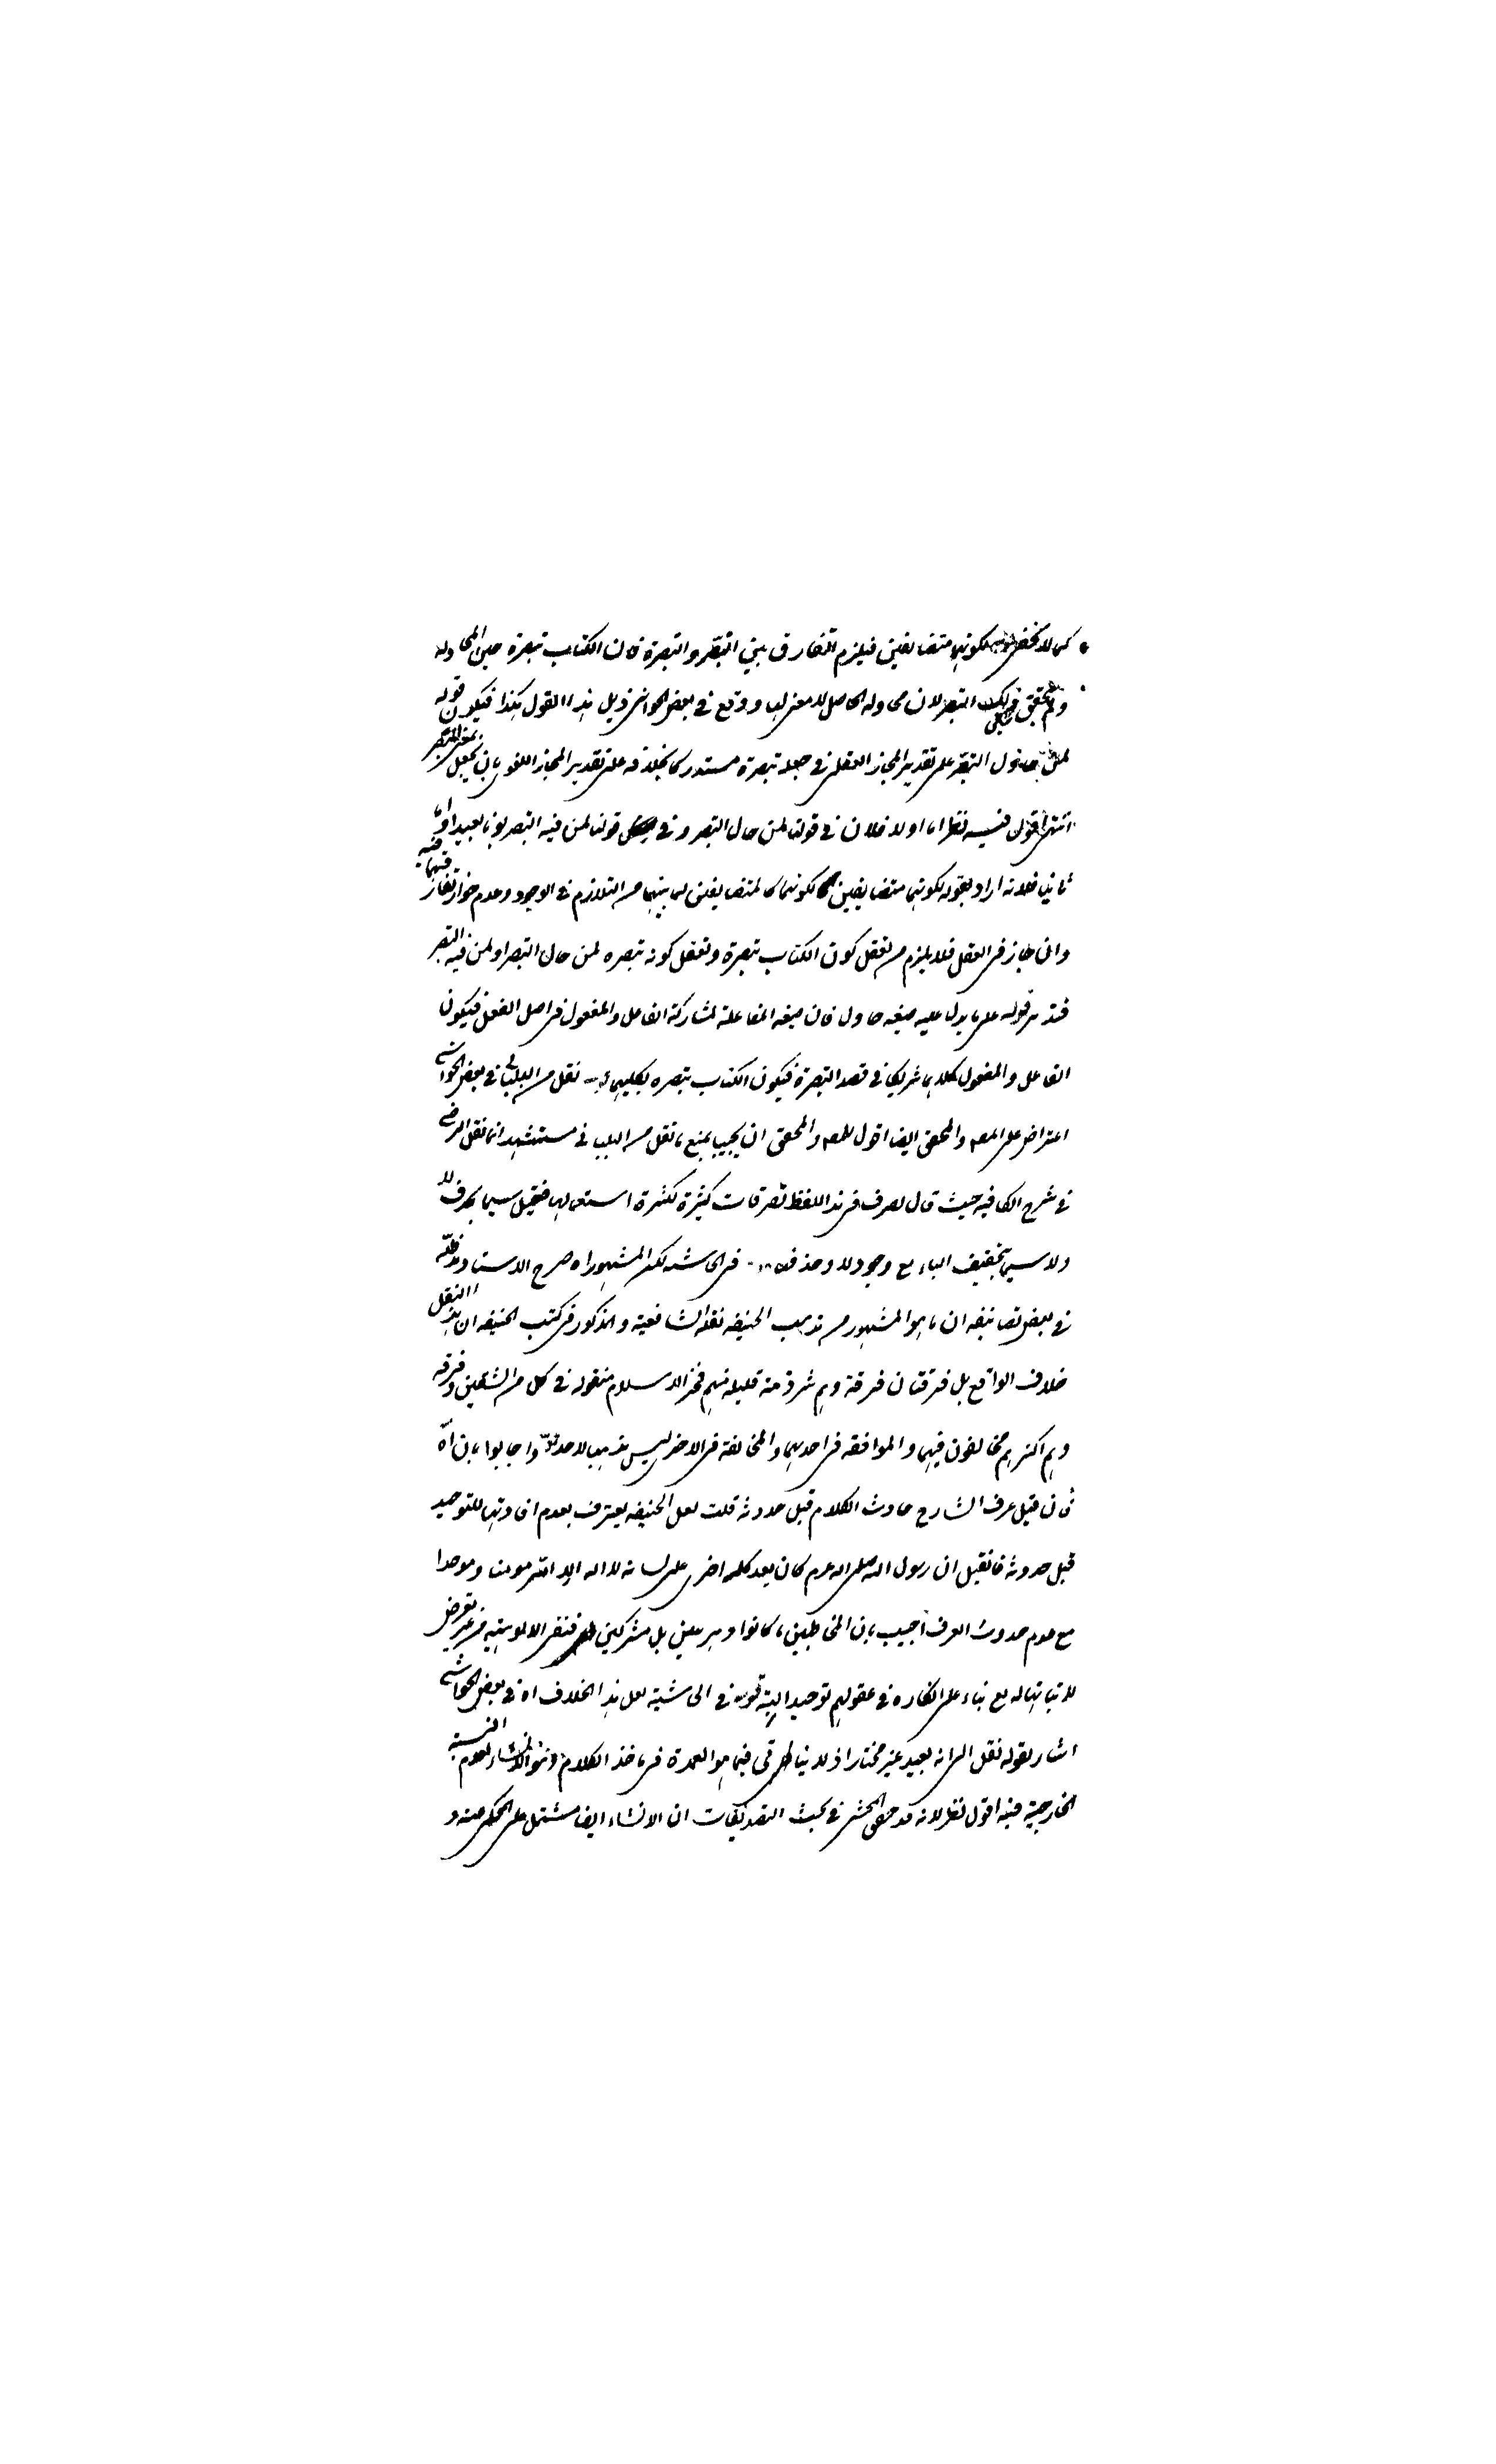 كما لا يخفى لكونهما متضايفين فيلزم التفارق بين التبصر والتبصرة فان الكتاب تبصرة حين المحاولة
ولم يتحقق التبصر لان محاولة الحاصل لا معنى لها ووقع في بعض الحواشي ذيل هذا القول هكذا فيكون قوله
لمن حاول التبصر على تقدير المجاز العقلي في جعله تبصرة مستدركا بخلافه على تقدير المجاز اللغوي بان يجعل بمعنى المتبصر
انتهى اقول فيه نظر اما اولا فلان في قولنا لمن حال التبصر وفي قولنا لمن فيه التبصر بونا بعيدا واما
ثانيا فلانه اراد بقوله لكونهما متضايفين لكونهما كالمتضايفين لما بينهما من التلازم في الوجود وعدم جواز تفارقهما فيه
وان جاز في العقل فلا يلزم من تعقل كون الكتاب تبصرة وتعقل كونه تبصره لمن حال التبصر او لمن فيه التبصر
قوله على ما يدل عليه صيغه حاول فان صيغه المفاعلة لمشاركة الفاعل والمفعول في اصل الفعل فيكون
الفاعل والمفعول كلاهما شريكا في قصد التبصرة فيكون الكتاب تبصره لكليهما نقل من البلباني في بعض الحواشي
اعتراض على المص والمحقق ايضا اقول للمص والمحقق ان يجيبا بمنع ما نقل من البلباني مستشهدا بما نقل الرضي
في شرح الكافيه حيث قال تصرف في هذا اللفظ تصرفات كثيرة لكثرة استعمالها فقيل سيما بحذف لا
ولا سيما بتخفيف الياء مع وجود لا وحذفه في الحاشيه لكن المشهور اه صرح الاستاد مد ظله
في بعض تصانيفه ان ما هو المشهور من مذهب الحنيفه نقله الشافعية والمذكور في كتب الحنيفه ان هذا النقل
خلاف الواقع بل فرقتان فرقة وهم شرذمة قليله منهم فخر الاسلام منقوله في كل من الشقين وفرقه
وهم اكثرهم مخالفون فيهما والموافقه في احدهما والمخالفة في الاخر ليس مذهبا لاحد قوله واجابوا بان اه
فان قيل عرف الشارع حادث الكلام قبل حدوثه قلت لعل الحنيفه يعترف بعدم افادتها للتوحيد
قبل حدوثه فان قيل ان رسول الله صلى الله عليه وسلم كان يعد كلمه اخرى على لسانه لا اله الا الله مومنا وموحدا
مع عدم حدوث العرف اجيب بان المخاطبين ما كانوا دهريين بل مشركين فنفي الالوهية من غير تعرض
لاثباتها له مع بناء على انكاره في عقولهم توحيدا البتة قوله في الحاشية لعل هذا الخلاف اه في بعض الحواشي
اشار بقوله نقل الى انه بعيد غير مختار اذ لا يتاتى فيما هو العمدة في ماخذ الكلام وهو الانشاء لعدم النسبة
الخارجية فيه اقول نظر لانه قد حقق المحشي في بحث التصديقات ان الانشاء ايضا مشتمل على الحكم منه و